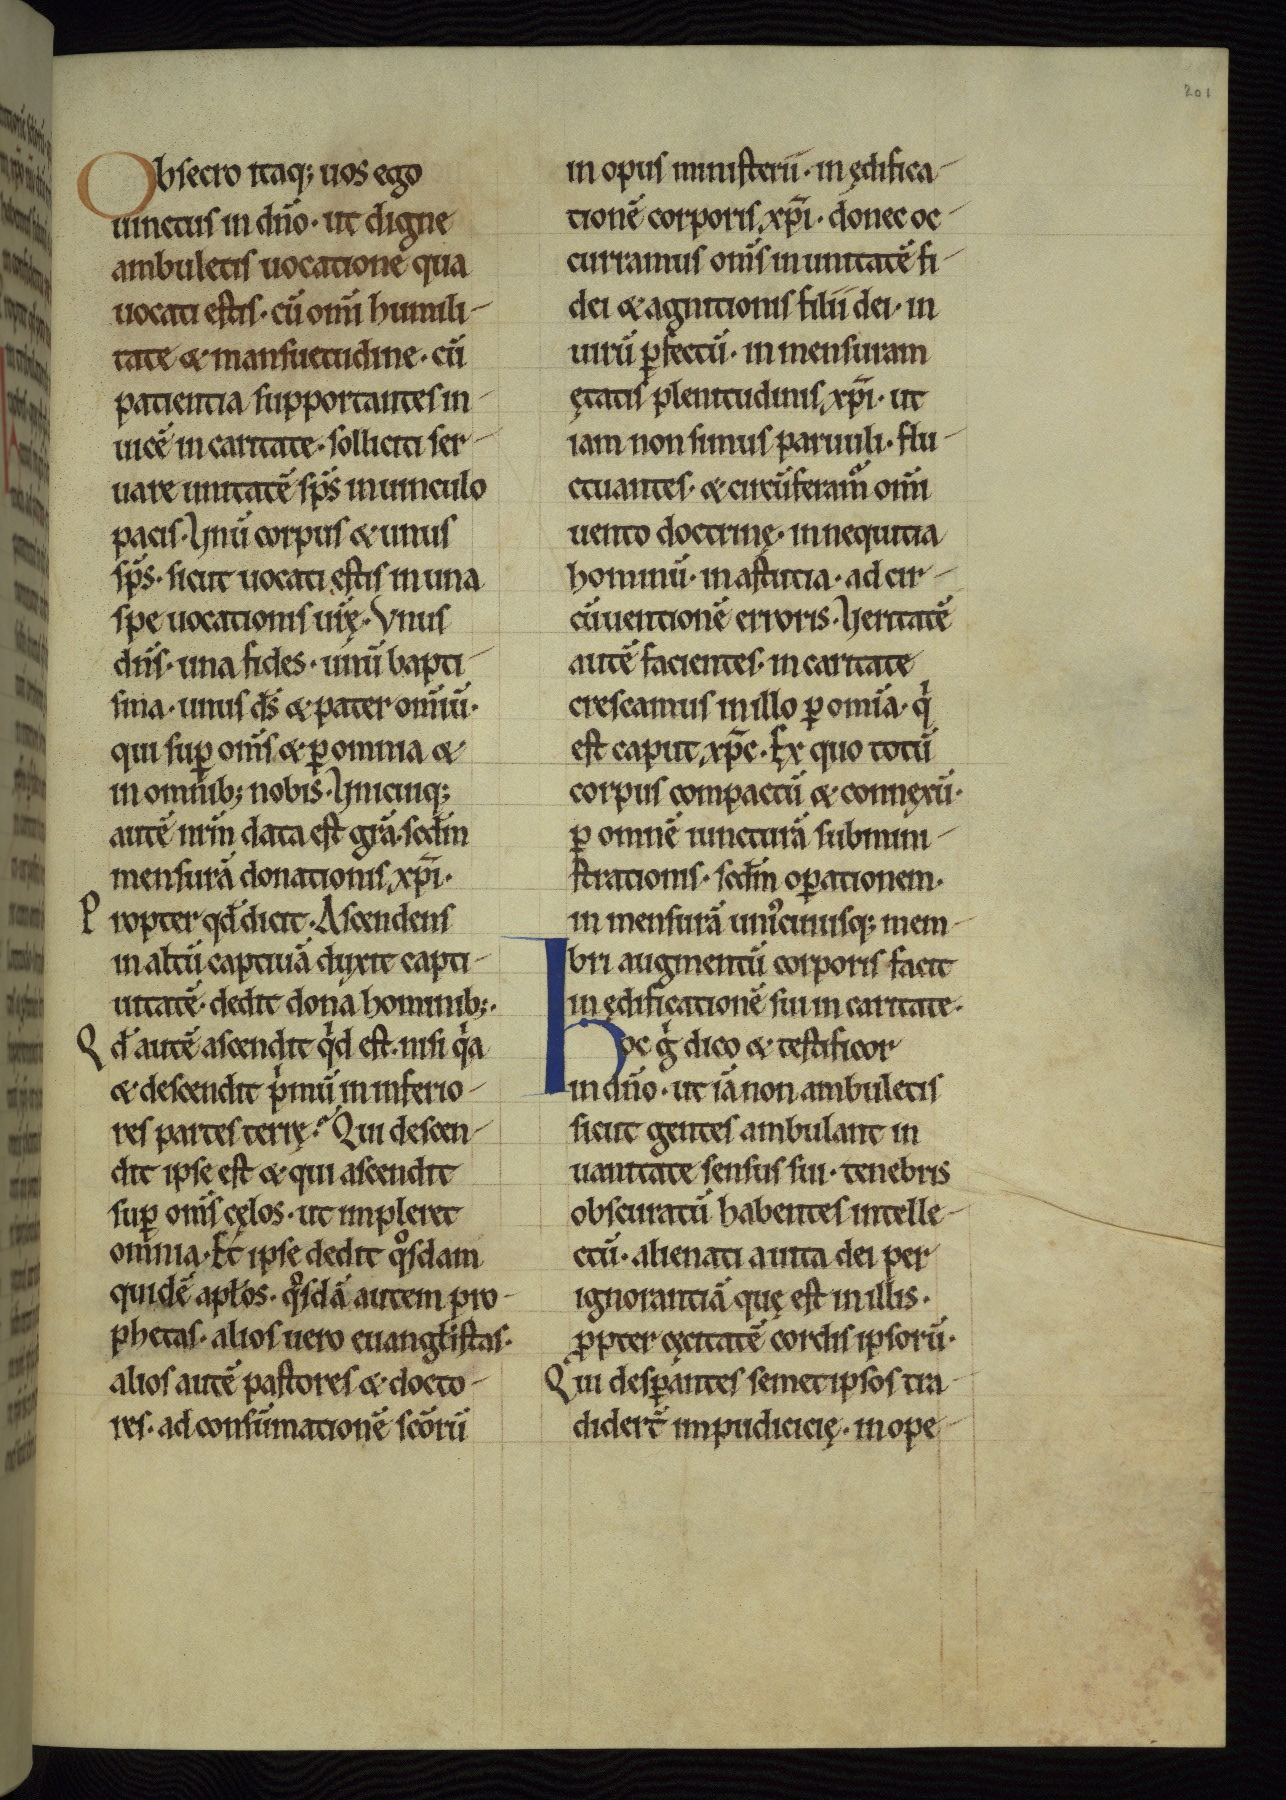 201
Obsecro itaq; uos ego
uinctus in dn̄o · ut digne
ambuletis uocatione qua
uocati estis · cū om̄i humili-
tate & mansuetudine · cū
patientia supportantes in-
uicē in caritate · solliciti ser-
uare unitatē sp̄s in uinculo
pacis · Unū corpus & unus
sp̄s · sicut uocati estis in una
spe uocationis ur̄ę · Vnus
dn̄s · una fides · unū bapti-
sma · unus d̄s & pater om̄iū ·
qui sup̱ om̄s & p̱ omnia &
in omnib; nobis · Unicuiq;
autē nr̄m data est gr̄a · scd̄m
mensurā donationis xp̄i ·
Propter qd̄ dicit · Ascendens
in altū captiuā duxit capti-
uitatē · dedit dona hominib; ·
Qd̄ autē ascendit qⁱd est · nisi qⁱa
& descendit pⁱmū in inferio-
res partes terrę? Qui descen-
dit ipse est & qui ascendit
sup̱ om̄s cęlos · ut impleret
omnia · Et ipse dedit qᵒsdam
quidē apl̄os · qᵒsdā autem pro-
phetas · alios uero euangl̄istas ·
alios autē pastores & docto-
res · ad consūmationē sc̄orū
in opus ministerii · in ędifica-
tionē corporis xp̄i · donec oc-
curramus om̄s in unitatē fi-
dei & agnitionis filii dei · in
uirū p̱fectū · in mensuram
ętatis plenitudinis xp̄i · ut
iam non simus paruuli · flu-
ctuantes · & circūferam᷒ om̄i
uento doctrinę · in nequitia
hominū · in astutia · ad cir-
cūuentionē erroris · Ueritatē
autē facientes · in caritate
crescamus in illo p̱ om̄ia · qⁱ
est caput xp̄c · Ex quo totū
corpus compactū & connęxū ·
p̱ omnē iuncturā submini-
strationis · scd̄m op̱ationem ·
in mensurā uni᷒cuiusq; mem-
bri augmentū corporis facit
in ędificationē sui in caritate ·
Hoc gⁱ dico & testificor
in dn̄o · ut iā non ambuletis
sicut gentes ambulant in
uanitate sensus sui · tenebris
obscuratū habentes intelle-
ctū · alienati a uita dei per
ignorantiā quę est in illis ·
ꝓpter cęcitatē cordis ipsorū ·
Qui desp̱antes semetipsos tra-
didert̄ impudicicię · in ope-